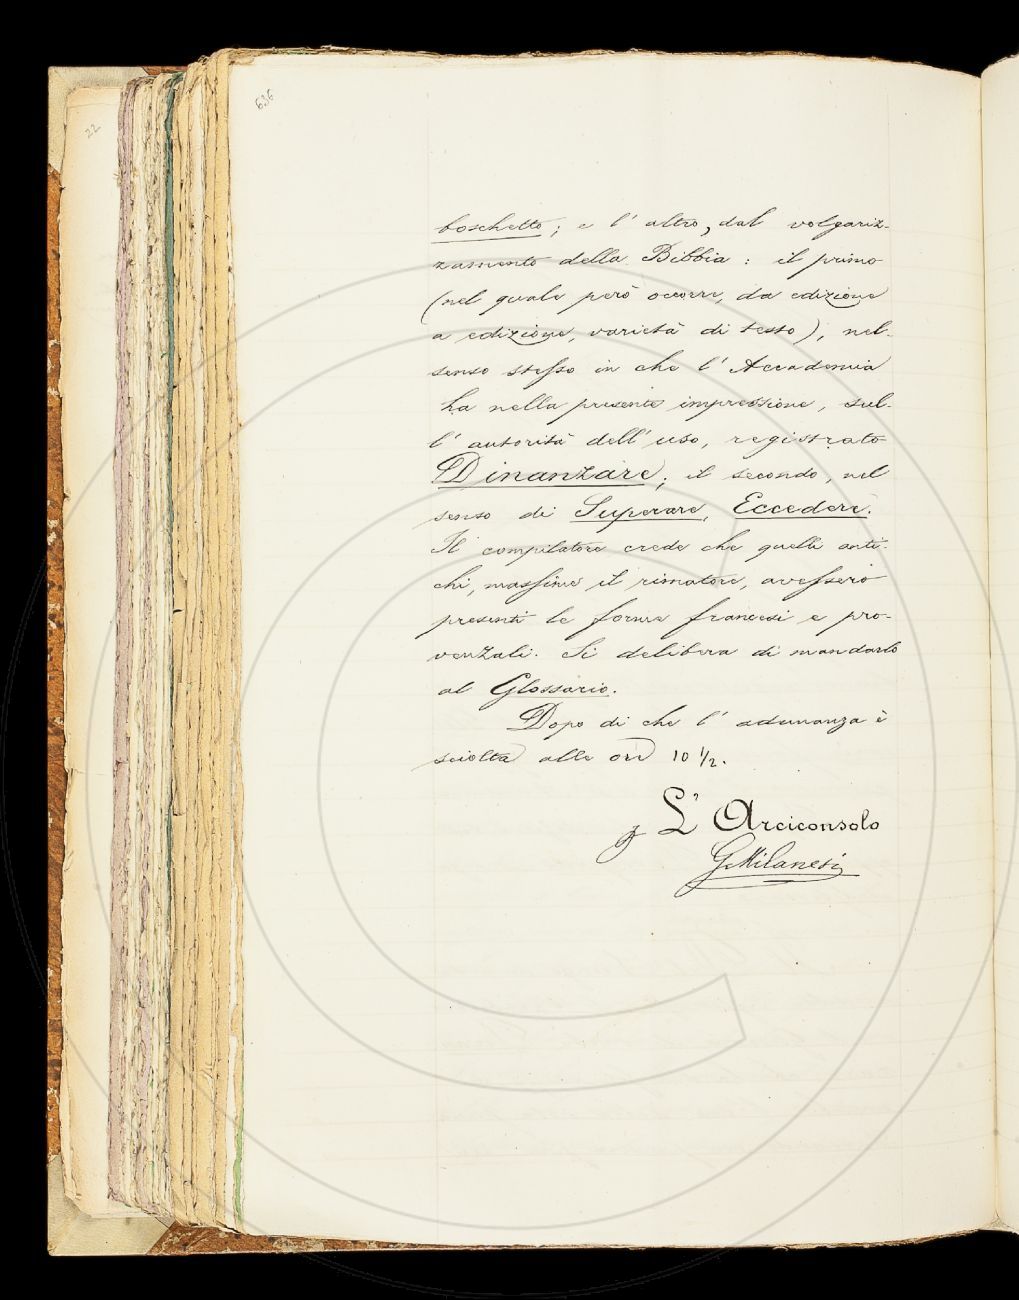 636
22
boschetto; e l' altro, dal volgariz-
zamento della Bibbia: il primo
(nel quale però occorre, da edizione
a edizione, varietà di testo), nel
senso stesso in che l' Accademia
ha nella presente impressione, sul-
l' autorità dell' uso, registrato
Dinanzare; il secondo, nel
senso di Superare, Eccedere.
Il compilatore crede che quelli anti-
chi, massime il rimatore, avessero
presenti le forme francesi e pro-
venzali. Si delibera di mandarlo
al Glossario.
Dopo di che l' adunanza è
sciolta alle ore 10 1/2.
L' Arciconsolo
G. Milanesi